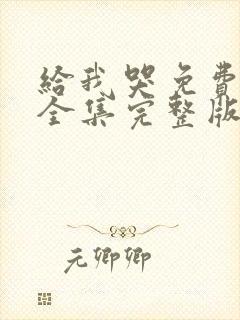 给我哭免費
全集完整版
元卿卿